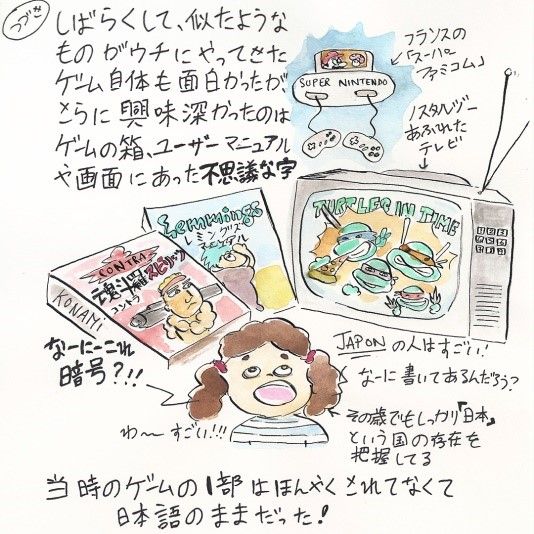 つづき
しばらくして、似たような
ものがウチにやってきた
ゲーム自体も面白かったが
さらに興味深かったのは
ゲームの箱、ユーザーマニュアル
や画面にあった不思議な字
フランスの
「スーパー
ファミコム」
SUPER NINTENDO
ノスタルジー
あふれた
テレビ
TURTLES IN TIME
Lemmings
レミングス
CONTRA
魂斗羅スピリッツ
コントラ
KONAMI
なーにーこれ
暗号?!!
わ〜すごい!!!
JAPONの人はすごい!
なーに書いてあるんだろう?
その歳でもしっかり「日本」
という国の存在を
把握してる
当時のゲームの1部はほんやくされてなくて
日本語のままだった!